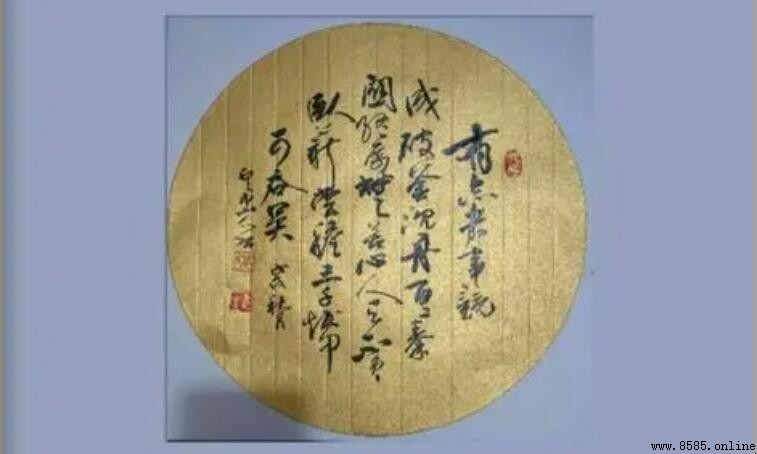 有志者事竟
成破釜沉舟百二秦
關終屬楚苦心人天不負
臥薪嘗膽三千越甲
可吞吴
www.8585.online